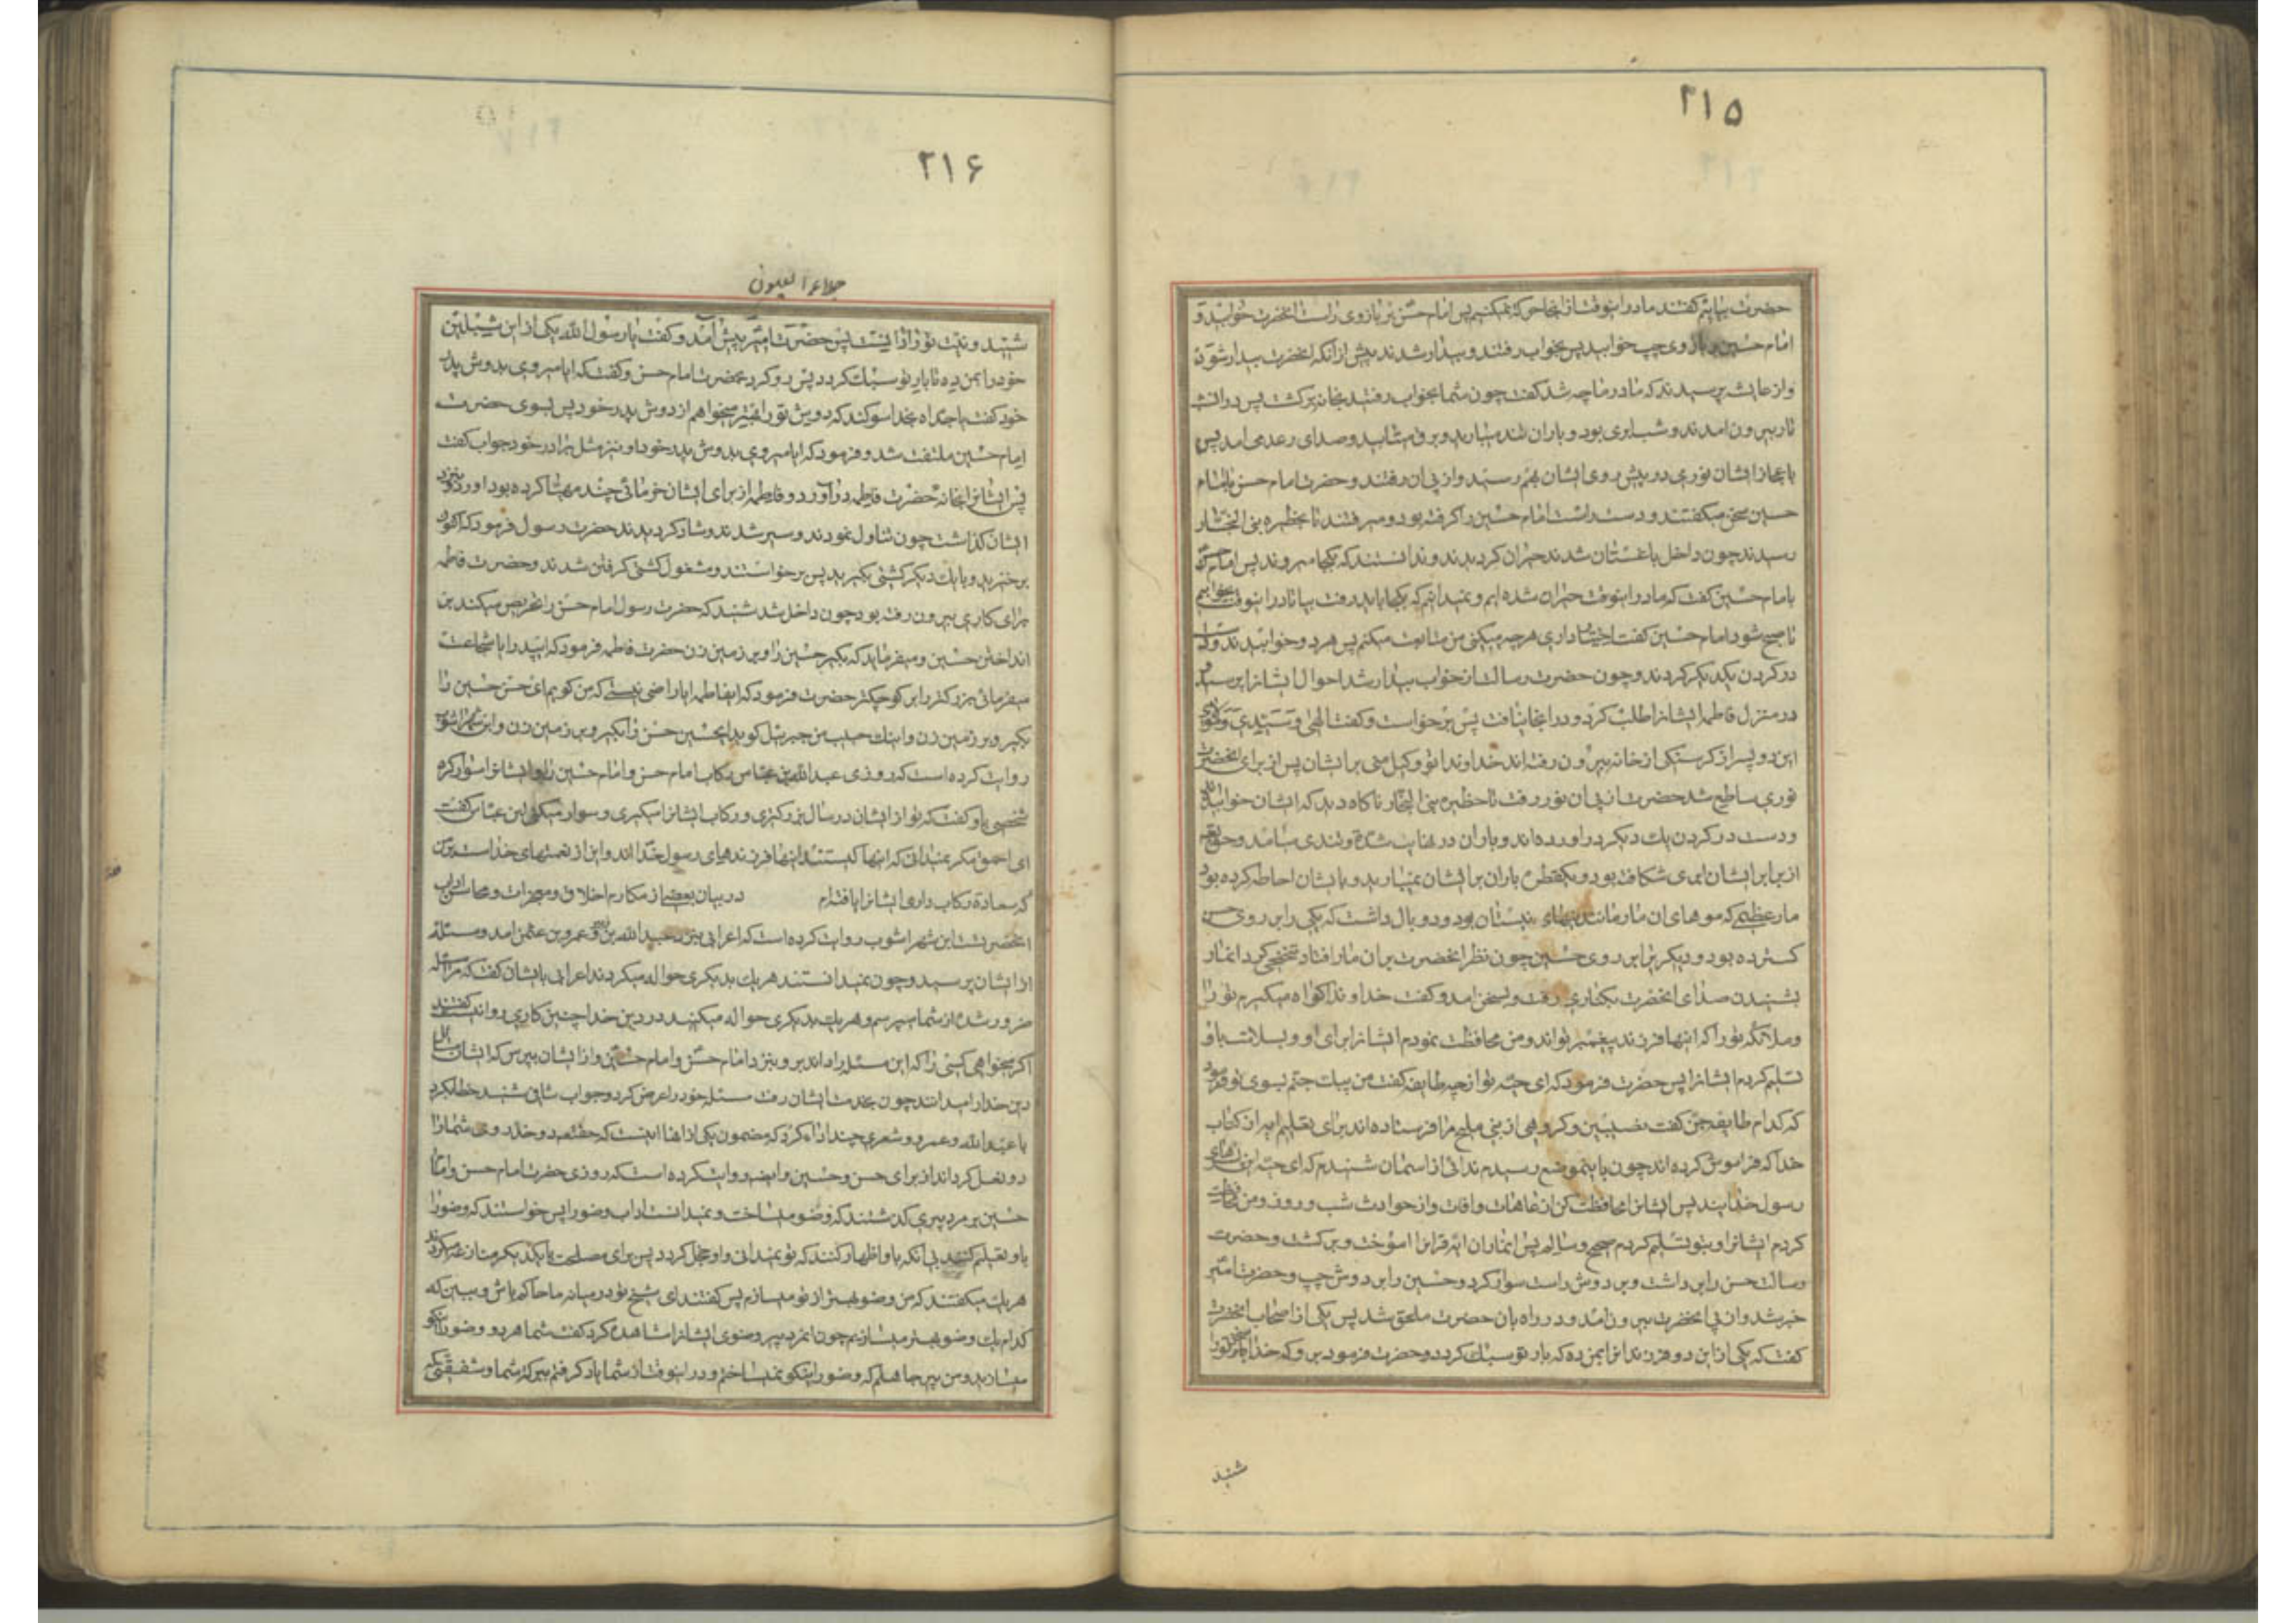 ۲۱۵
حضرت بیابیم گفتند مادر اینوقت از اینجا حرکت نمیکنیم پس امام حسن بر بازوی راست انحضرت خوابید و
امام حسین بر بازوی چپ خوابید پس بخواب رفتند و بیدار شدند پیش از آنکه انحضرت بیدار شود
و از عایشه پرسیدند که مادر ما چه شد گفت چون شما بخواب رفتید بخانه برگشت پس در انشب
تار بیرون امدند و شب ابری بود و باران تند میبارید و برق میتابید و صدای رعد می امد پس
باعجاز ایشان نوری در پیش روی ایشان بهم رسید و از پی ان رفتند و حضرت امام حسن با امام
حسین سخن میگفتند و دست راست امام حسین را گرفته بود و میرفتند تا بحظیره بنی النجار
رسیدند چون داخل باغستان شدند حیران گردیدند و ندانستند که بکجا میروند پس امام حسن
بامام حسین گفت که ما در اینوقت حیران شده ایم و نمیدانیم که بکجا باید رفت بیا تا در اینوقت بخوابیم
تا صبح شود امام حسین گفت اختیار داری هرچه میکنی من متابعت میکنم پس هر دو خوابیدند و دست
در گردن یکدیگر کردند و چون حضرت رسالت از خواب بیدار شد احوال ایشانرا پرسید و
در منزل فاطمه ایشانرا طلب کرد و در انجا نیافت پس برخواست و گفت الهی و سیدی و مولای
این دو پسر از گرسنگی از خانه بیرون رفته اند خداوندا تو وکیل منی بر ایشان پس از برای انحضرت
نوری ساطع شد حضرت از پی ان نور رفت تا حظیره بنی النجار ناگاه دید که ایشان خوابیده اند
و دست در گردن یک دیگر در اورده اند و باران در نهایت شدة و تندی میامد و حق تعالی
از برابر ایشان ابری شکافته بود و یکقطره باران بر ایشان نمیبارید و با یشان احاطه کرده بود
مار عظیمی که موهای ان مار مانند نیهای نیستان بود و دو بال داشت که یکی را بر روی حسن
گسترده بود و دیگر برا بر روی حسین چون نظر انحضرت بر ان مار افتاد تنحنحی کرد انمار
بشنیدن صدای انحضرت بکناری رفت و بسخن امد و گفت خداوندا گواه میگیرم تو را
و ملائکه تو را که اینها فرزند پیغمبر تواند و من محافظت نمودم ایشانرا برای او و بسلامت باو
تسلیم کردم ایشانرا پس حضرت فرمود که ای حیّه تو از چه طایفه گفت من پیک جنّم بسوی تو فرمود
که کدام طایفه جن گفت نصیبین و گروهی از بنی ملیح مرا فرستاده اند برای تعلیم ایه از کتاب
خدا که فراموش کرده اند چون باینموضع رسیدم ندائی از اسمان شنیدم که ای حیّه این
رسول خدایند پس ایشانرا محافظت کن از عاهات و افات و از حوادث شب و روز و من محافظت
کردم ایشانرا و بتو تسلیم کردم صحیح و سالم پس انمار ان ایه قرانرا اموخت و برگشت و حضرت
رسالت حسن را بر داشت و بر دوش راست سوار کرد و حسین را بر دوش چپ و حضرت امیر
خبر شد و از پی انحضرت بیرون امد و در راه بان حضرت ملحق شد پس یکی از اصحاب انحضرت
گفت که یکی از این دو فرزند انرا بمن ده که بار تو سبک گردد و حضرت فرمود برو که خدا سخن تو را
شنید
۲۱۶
جلاء العیون
شنید و نیت تو را دانست پس حضرت امیر پیش امد و گفت یا رسول الله یکی از این شبلین
خود را بمن ده تا بار تو سبک گردد پس رو کرد بحضرت امام حسن و گفت که ایا میروی بدوش پدر
خود گفت یا جداه بخدا سوگند که دوش تو را بهتر میخواهم از دوش پدر خود پس بسوی حضرت
امام حسین ملتفت شد و فرمود که ایا میروی بدوش پدر خود او نیز مثل برادر خود جواب گفت
پس ایشانرا بخانه حضرت فاطمه در آورد و فاطمه از برای ایشان خرمائی چند مهیا کرده بود اورد و نزد
ایشان گذاشت چون تناول نمودند و سیر شدند و شاد گردیدند حضرت رسول فرمود که اکنون
برخیزید و با یک دیگر کشتی بگیرید پس برخواستند و مشغول کشتی گرفتن شدند و حضرت فاطمه
برای کاری بیرون رفته بود چون داخل شد شنید که حضرت رسول امام حسن را تحریص میکند بر
انداختن حسین و میفرماید که بگیر حسین را و بر زمین زن حضرت فاطمه فرمود که ای پدر ایا شجاعت
میفرمائی بزرگتر را بر کوچکتر حضرت فرمود که ایفاطمه ایا راضی نیستی که من گویم ای حسن حسین را
بگیر و بر زمین زن و اینک حبیب من جبرئیل گوید ایحسین حسن را بگیر و بر زمین زن و ابن شهراشوب
روایت کرده است که روزی عبدالله بن عباس رکاب امام حسن و امام حسین را و ایشانرا سوار کرد
شخصی باو گفت که تو از ایشان در سال بزرگتری و رکاب ایشانرا میگیری و سوار میکنی ابن عباس گفت
ای احمق مگر نمیدانی که اینها کیستند اینها فرزندهای رسول خدا اند و این از نعمتهای خداست بر من
که سعادة رکاب داری ایشانرا یافته ام در بیان بعضی از مکارم اخلاق و معجزات و محاسن اداب
انحضرتست ابن شهراشوب روایت کرده است که اعرابی بنزد عبدالله بن زبیر و عمرو بن عثمن امد و مسئله
از ایشان پرسید و چون نمیدانستند هر یک بدیگری حواله میکردند اعرابی بایشان گفت که مرا مسئله
ضرور شده از شما میپرسم و هر یک بدیگری حواله میکنید در دین خدا چنین کاری روا نیست گفتند
اگر میخواهی کسی را که این مسئله را داند برو بنزد امام حسن و امام حسین و از ایشان بپرس که ایشان مسائل
دین خدا را میدانند چون بخدمت ایشان رفت مسئله خود را عرض کرد و جواب شافی شنید خطاب کرد
با عبدالله و عمرو و شعری چند اداء کرد که مضمون یکی از انها اینست که حقتعالی دو خد روی شما را
دو نعل گرداند از برای حسن و حسین و ایضا روایتکرده است که روزی حضرت امام حسن و امام
حسین بر مرد پیری گذشتند که وضو میساخت و نمیدانست اداب وضو را پس خواستند که وضو را
باو تعلیم کنند بی آنکه باو اظهار کنند که تو نمیدانی و او خجل گردد پس برای مصلحت با یکدیگر منازعه میکردند
هر یک میگفتند که من وضو بهتر از تو میسازم پس گفتند ای شیخ تو در میانه ما حاکم باش و ببین که
کدام یک وضو بهتر میسازیم چون انمرد پیر وضوی ایشانرا مشاهده کرد گفت شما هر دو وضو را نیکو
میسازید و من پیر جاهلم که وضو را نیکو نمیساختم و در اینوقت از شما یاد گرفتم ببرکت شما و شفقتی که